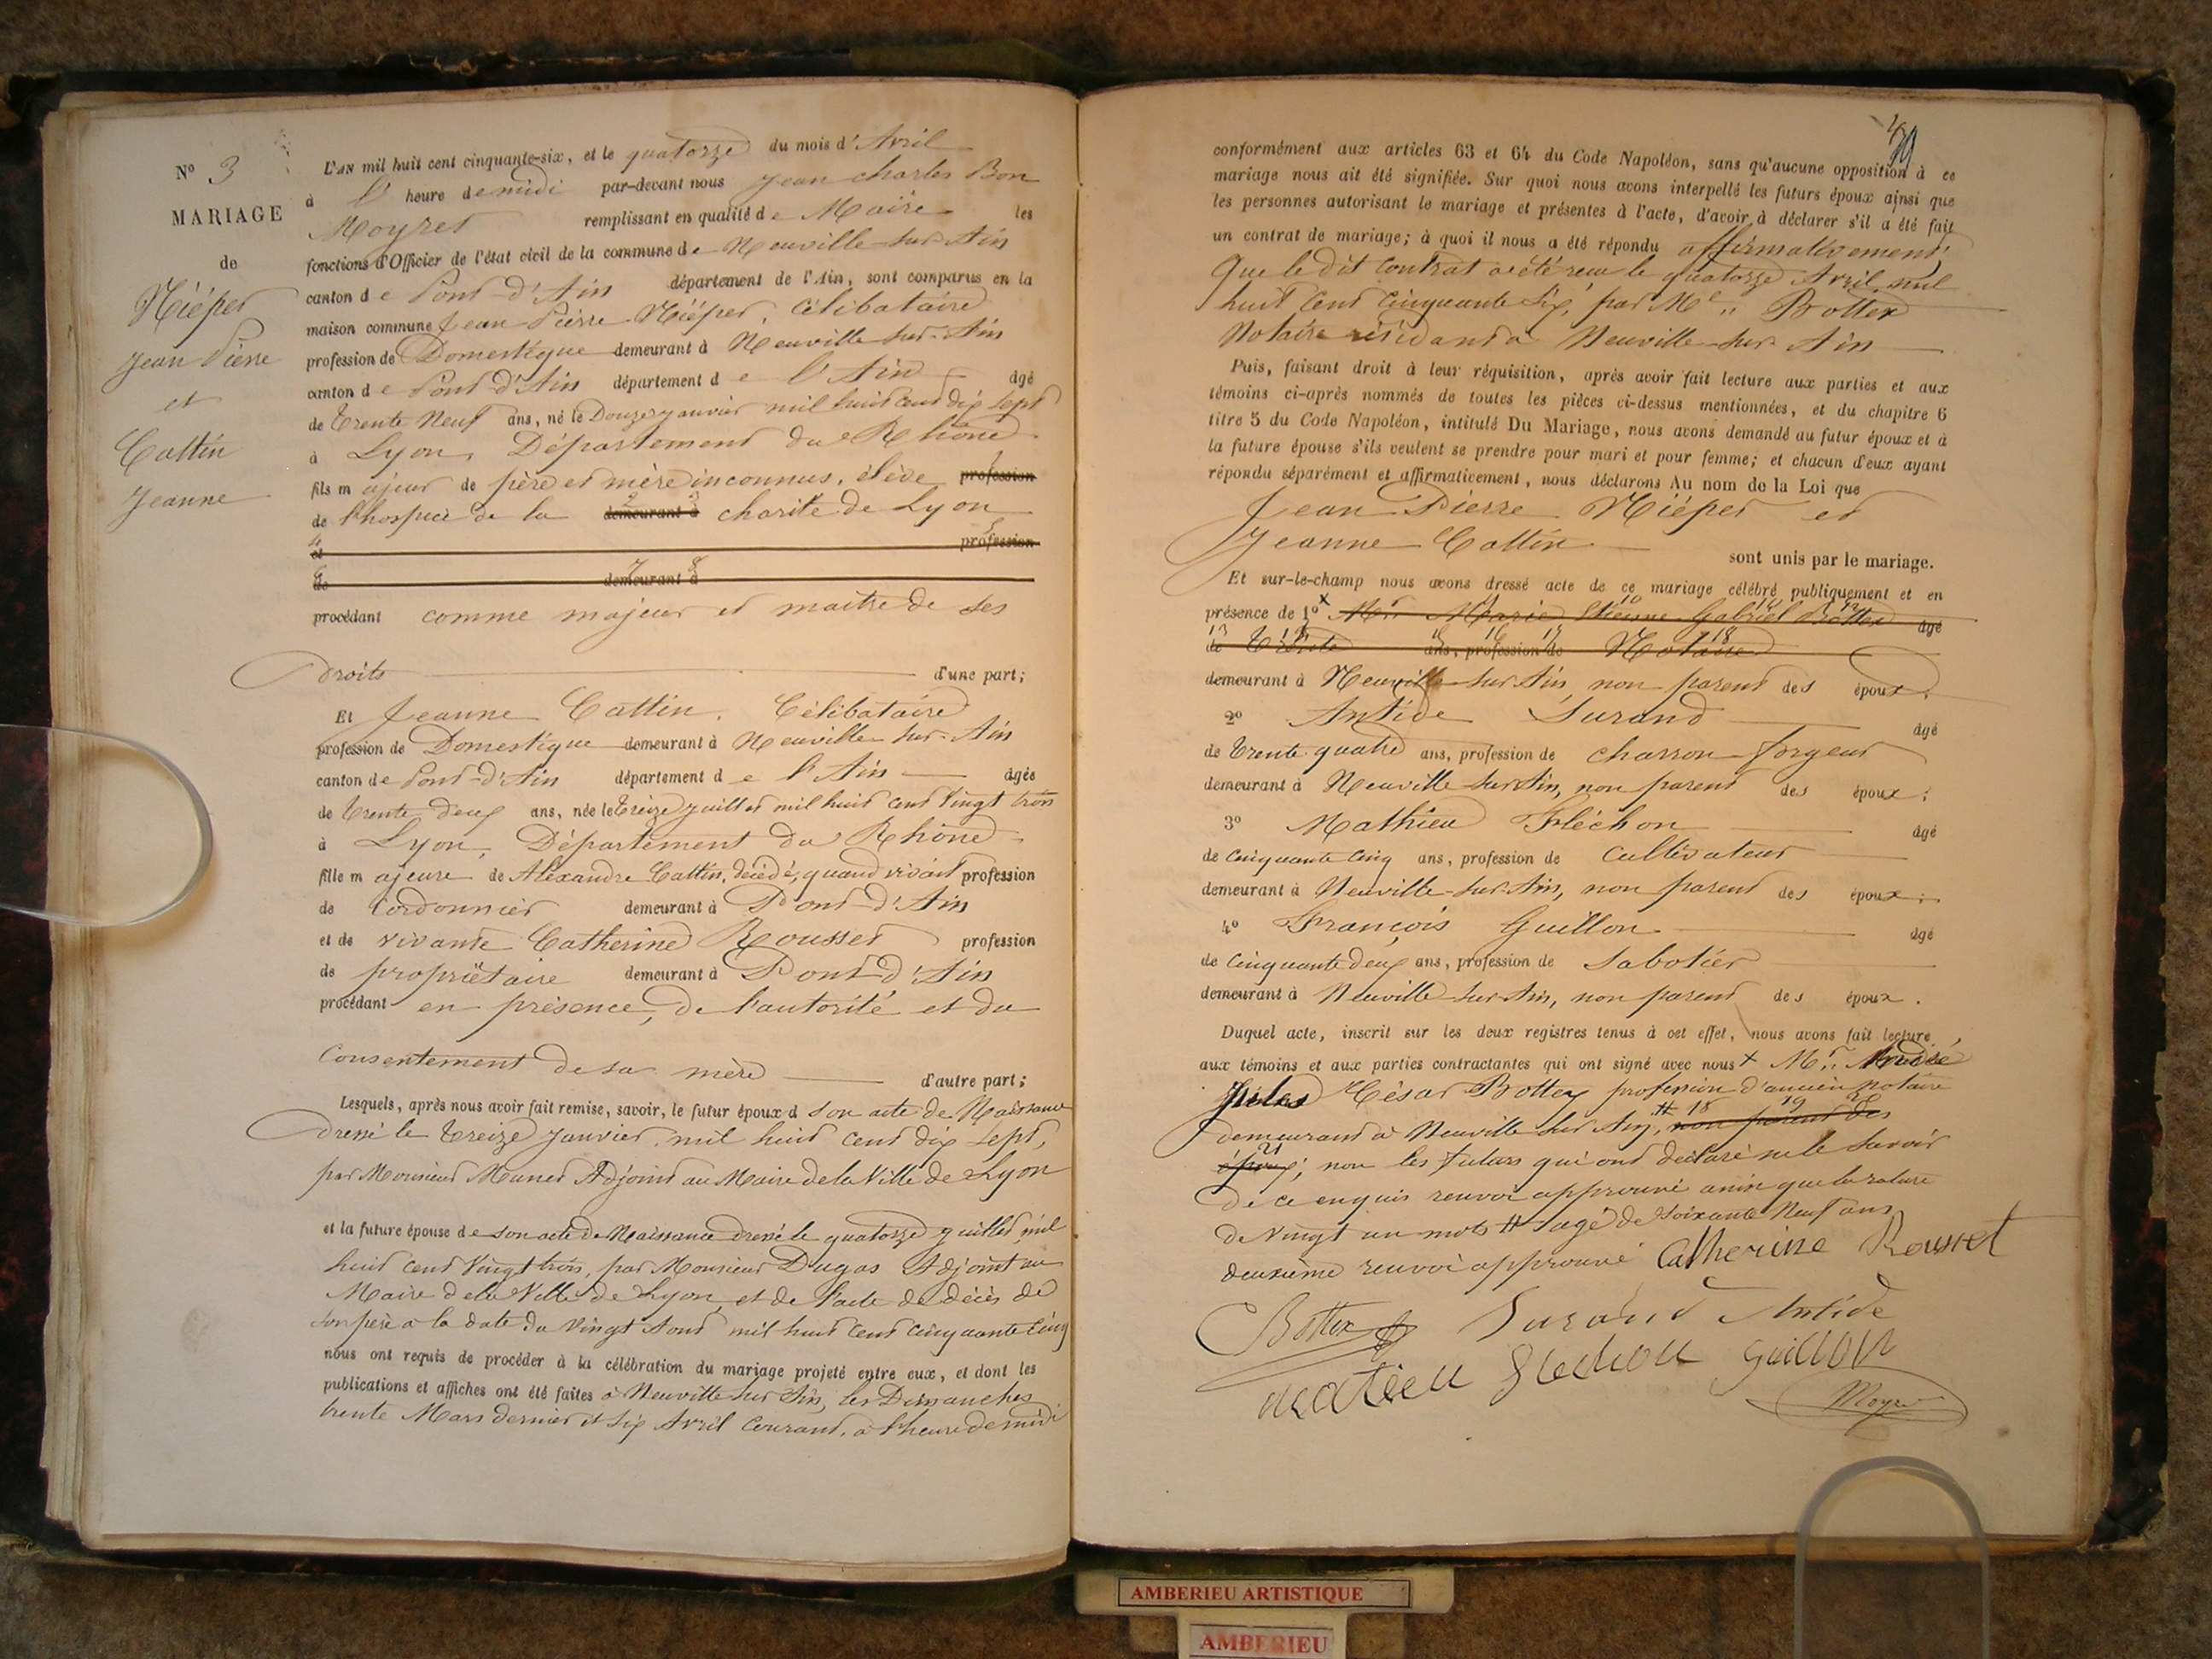 N° 3
MARIAGE
de
Niépet
Jean Pierre
et
Cattin
Jeanne
L'AN mil huit cent cinquante-six, et le quatorze du mois d'Avril
à l' heure de midi par-devant nous Jean Charles Bon
Moyret remplissant en qualité de Maire les
fonctions d'Officier de l'état civil de la commune de Neuville-sur-Ain
canton de Pont-d'Ain département de l'Ain, sont comparus en la
maison commune Jean Pierre Niépet, Célibataire
profession de Domestique demeurant à Neuville-sur-Ain
canton de Pont-d'Ain département de l'Ain âgé
de Trente Neuf ans, né le Douze Janvier mil huit cent dix sept
à Lyon, Département du Rhône
fils majeur de père et mère inconnus, élève profession
de l'hospice de la demeurant à charité de Lyon
et profession
de demeurant à
procédant comme majeur et maître de ses
droits d'une part;
Et Jeanne Cattin, Célibataire
profession de Domestique demeurant à Neuville-sur-Ain
canton de Pont-d'Ain département de l'Ain âgée
de Trente deux ans, née le Treize Juillet mil huit cent vingt trois
à Lyon, Département du Rhône
fille majeure de Alexandre Cattin, décédé, quand vivait profession
de Cordonnier demeurant à Pont-d'Ain
et de vivante Catherine Rousset profession
de propriétaire demeurant à Pont-d'Ain
procédant en présence, de l'autorité et du
Consentement de sa mère d'autre part;
Lesquels, après nous avoir fait remise, savoir, le futur époux d son acte de Naissance
dressé le treize Janvier mil huit cent dix sept,
par Monsieur Adjoint au Maire de la Ville de Lyon
et la future épouse de son acte de Naissance dressé le quatorze juillet mil
huit cent vingt trois, par Monsieur Dugas Adjoint au
Maire de la Ville de Lyon, et de l'acte de décès de
son père à la date du vingt Aout mil huit cent cinquante cinq
nous ont requis de procéder à la célébration du mariage projeté entre eux, et dont les
publications et affiches ont été faites à Neuville sur Ain, les Dimanches
trente Mars dernier et six Avril courant, à l'heure de midi
conformément aux articles 63 et 64 du Code Napoléon, sans qu'aucune opposition à ce
mariage nous ait été signifiée. Sur quoi nous avons interpellé les futurs époux ainsi que
les personnes autorisant le mariage et présentes à l'acte, d'avoir à déclarer s'il a été fait
un contrat de mariage; à quoi il nous a été répondu affirmativement,
Que le dit contrat a été reçu le quatorze Avril mil
huit cent cinquante six, par Me Bottex
Notaire résidant à Neuville-sur-Ain
Puis, faisant droit à leur réquisition, après avoir fait lecture aux parties et aux
témoins ci-après nommés de toutes les pièces ci-dessus mentionnées, et du chapitre 6
titre 5 du Code Napoléon, intitulé Du Mariage, nous avons demandé au futur époux et à
la future épouse s'ils veulent se prendre pour mari et pour femme; et chacun d'eux ayant
répondu séparément et affirmativement, nous déclarons Au nom de la Loi que
Jean Pierre Niépet et
Jeanne Cattin sont unis par le mariage.
Et sur-le-champ nous avons dressé acte de ce mariage célébré publiquement et en
présence de 1° Mr Marie Etienne Gabriel Bottex âgé
de Trente ans, profession de Notaire
demeurant à Neuville-sur-Ain, non parent des époux;
2° Antide Durand âgé
de Trente quatre ans, profession de charron-forgeur
demeurant à Neuville sur Ain, non parent des époux;
3° Mathieu Fléchon âgé
de cinquante cinq ans, profession de cultivateur
demeurant à Neuville-sur-Ain, non parent des époux;
4° François Guillon âgé
de cinquante deux ans, profession de sabotier
demeurant à Neuville-sur-Ain, non parent des époux.
Duquel acte, inscrit sur les deux registres tenus à cet effet, nous avons fait lecture
aux témoins et aux parties contractantes qui ont signé avec nous + Mr
César Bottex profession d'ancien notaire
demeurant à Neuville sur Ain, # non parent des
époux; non les futurs qui ont déclaré ne le savoir
de ce enquis renvoi approuvé ainsi que la rature
de vingt un mots # agé de soixante Neuf ans
deuxième renvoi approuvé Catherine Rousset
Bottex Durand Antide
Matieu Flechon Guillon
Moyret
AMBERIEU ARTISTIQUE
AMBERIEU